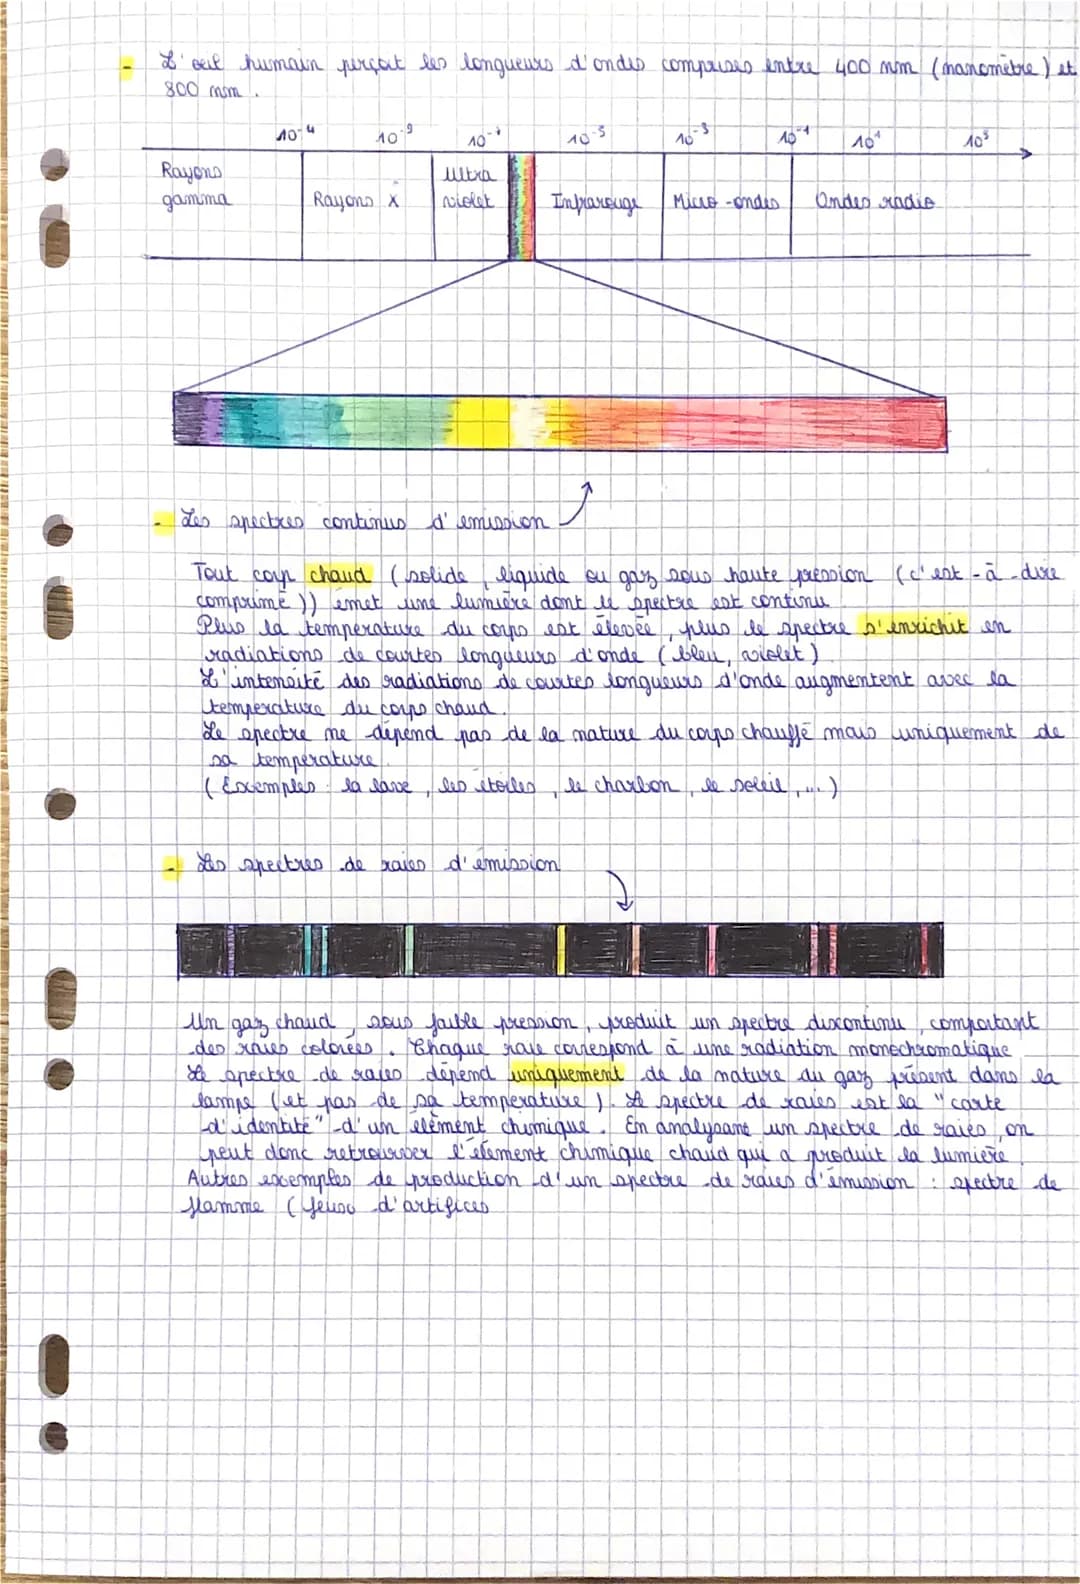 - L'oeil humain perçoit les longueurs d'ondes comprises entre 400 nm (nanomètre) et
800 nm.
10⁻⁴ 10⁻⁹ 10⁻⁷ 10⁻⁵ 10⁻³ 10⁻¹ 10¹ 10³
Rayons gamma
Rayons X
Ultra violet
Infrarouge
Micro-ondes
Ondes radio
- Les spectres continus d'émission
Tout corp chaud (solide, liquide ou gaz sous haute pression (c'est-à-dire
comprimé)) émet une lumière dont le spectre est continu
Plus la température du corps est élevée, plus le spectre s'enrichit en
radiations de courtes longueurs d'onde (bleu, violet)
L'intensité des radiations de courtes longueurs d'onde augmentent avec la
température du corps chaud.
Le spectre ne dépend pas de la nature du corps chauffé mais uniquement de
sa température.
(Exemples : la lave, les étoiles, le charbon, le soleil, ...)
- Les spectres de raies d'émission
Un gaz chaud, sous faible pression, produit un spectre discontinu, comportant
des raies colorées. Chaque raie correspond à une radiation monochromatique
Le spectre de raies dépend uniquement de la nature du gaz présent dans la
lampe (et pas de sa température). Le spectre de raies est la "carte
d'identité" d'un élément chimique. En analysant un spectre de raies, on
peut donc retrouver l'élément chimique chaud qui a produit la lumière.
Autres exemples de production d'un spectre de raies d'émission : spectre de
flamme (feux d'artifices